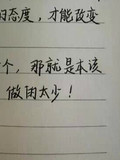 的态度，才能改变
个，那就是本该
做固太少！